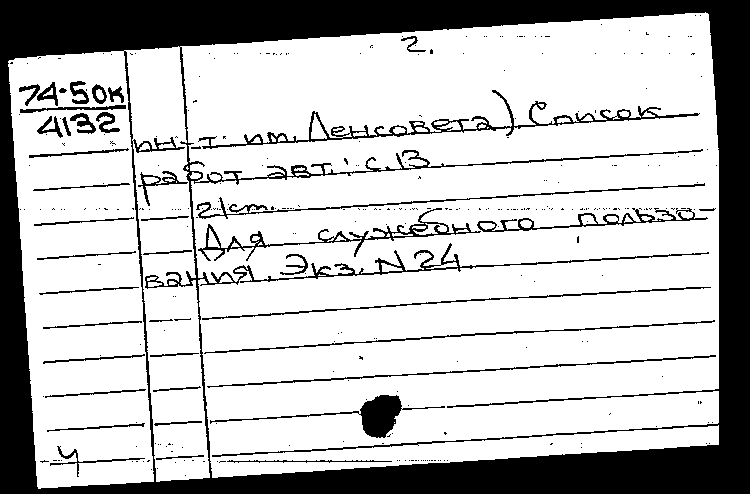 2.
74-50к
4132
ин-т. им. Ленсовета) Список
работ авт.: с.13
2/ст.
Для служебного пользо-
вания. Экз. N 24
ч